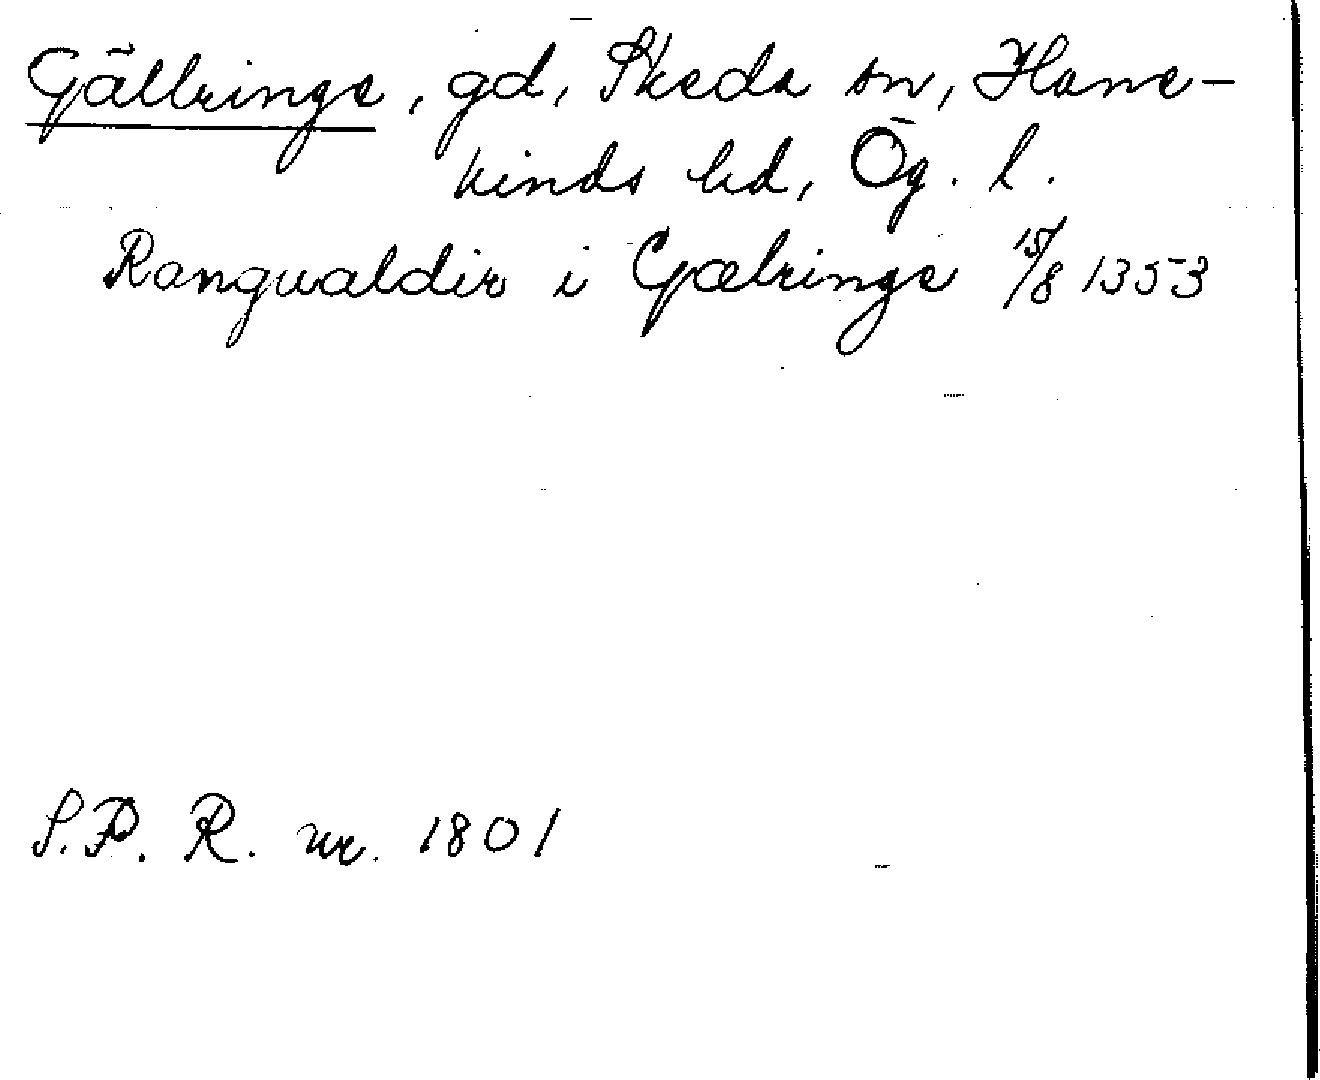 Gällringe, gd, Skeda sn, Hane-
kinds hd, Ög. l.
Rangualdir i Gælringe 15/8 1353
S.P. R. nr. 1801